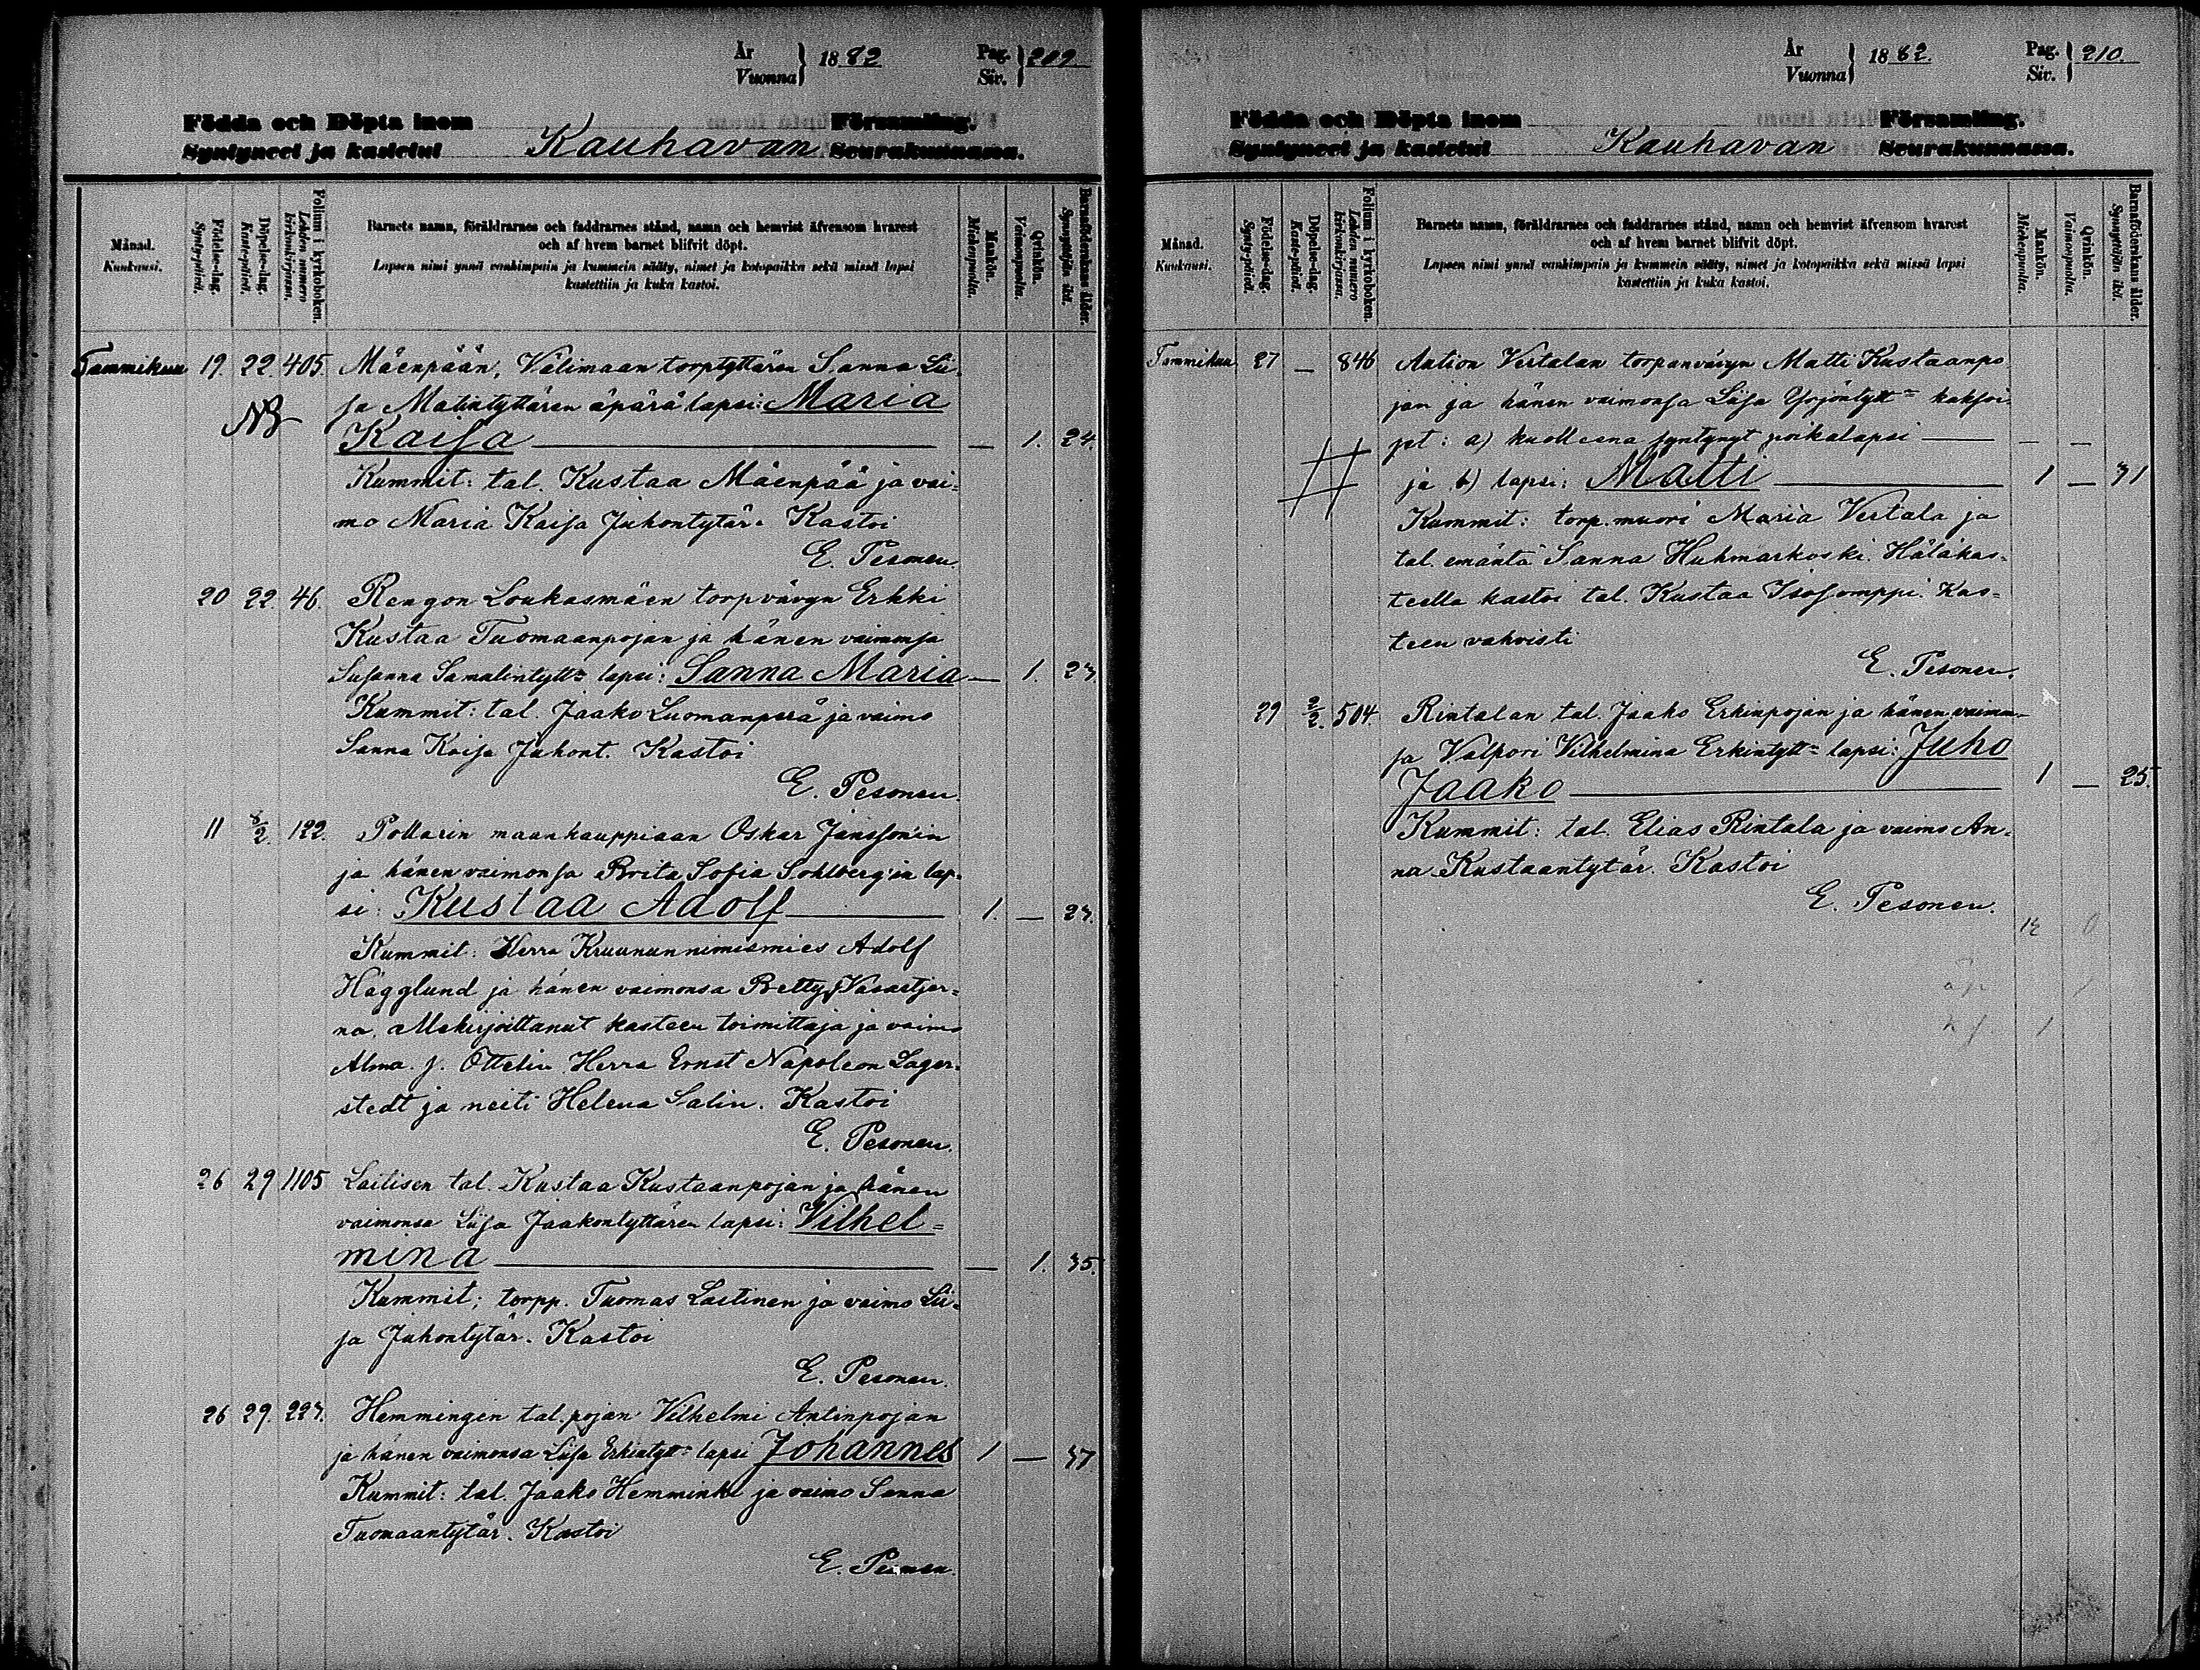 År
Vuonna } 1882 Pag.
Siv. } 209
Födda och Döpta inom Församling.
Syntyneet ja kastetut Kauhavan Seurakunnassa.
Månad.
Kuukausi.
Födelse-dag.
Synty-päivä.
Döpelse-dag.
Kaste-päivä.
Folium i kyrkoboken.
Lehden numero kirkonkirjassa.
Barnets namn, föräldrarnes och faddrarnes stånd, namn och hemvist äfvensom hvarest
och af hvem barnet blifvit döpt.
Lapsen nimi ynnä vanhimpain ja kummein sääty, nimet ja kotopaikka sekä missä lapsi
kastettiin ja kuka kastoi.
Mankön.
Miehenpuolta.
Qvinkön.
Vaimonpuolta.
Barnaföderskans ålder.
Synnyttäjän ikä.
Tammikuu 19. 22. 405. Mäenpään, Välimaan torptyttären Sanna Lii-
sa Matintyttären äpärä lapsi: Maria
NB Kaisa — 1. 24.
Kummit: tal. Kustaa Mäenpää ja vai-
mo Maria Kaisa Juhontytär. Kastoi
E. Pesonen.
20 22. 46. Rengon Loukasmäen torpvävyn Erkki
Kustaa Tuomaanpojan ja hänen vaimonsa
Susanna Samulintytt: lapsi: Sanna Maria — 1. 23.
Kummit: tal. Jaako Luomanperä ja vaimo
Sanna Kaisa Juhont. Kastoi
E. Pesonen.
11 8/2. 122. Pollarin maankauppiaan Oskar Jansson'in
ja hänen vaimonsa Brita Sofia Sohlberg'in lap-
si: Kustaa Adolf 1. — 23.
Kummit: Herra Kruununnimismies Adolf
Hägglund ja hänen vaimonsa Betty Wasastjer-
na. Allekirjoittanut kasteen toimittaja ja vaimo
Alma. f. Ottelin Herra Ernst Napoleon Lager-
stedt ja neiti Helena Salin. Kastoi
E. Pesonen.
26 29 1105 Laitisen tal. Kustaa Kustaanpojan ja hänen
vaimonsa Liisa Jaakontyttären lapsi: Vilhel-
mina — 1. 35.
Kummit; torpp. Tuomas Laitinen ja vaimo Lii-
sa Juhontytär. Kastoi
E. Pesonen.
26 29. 223. Hemmingin tal. pojan Vilhelmi Antinpojan
ja hänen vaimonsa Liisa Erkintytt: lapsi Johannes 1 — 37
Kummit: tal. Jaako Hemminki ja vaimo Sanna
Tuomaantytär. Kastoi
E. Pesonen.
År
Vuonna } 1882. Pag.
Siv. } 210.
Födda och Döpta inom Församling.
Syntyneet ja kastetut Kauhavan Seurakunnassa.
Månad.
Kuukausi.
Födelse-dag.
Synty-päivä.
Döpelse-dag.
Kaste-päivä.
Folium i kyrkoboken.
Lehden numero kirkonkirjassa.
Barnets namn, föräldrarnes och faddrarnes stånd, namn och hemvist äfvensom hvarest
och af hvem barnet blifvit döpt.
Lapsen nimi ynnä vanhimpain ja kummein sääty, nimet ja kotopaikka sekä missä lapsi
kastettiin ja kuka kastoi.
Mankön.
Miehenpuolta.
Qvinkön.
Vaimonpuolta.
Barnaföderskans ålder.
Synnyttäjän ikä.
Tammikuu 27 — 846 Aution Vertalan torpanvävyn Matti Kustaanpo
jan ja hänen vaimonsa Liisa Yrjöntytt: kaksoi-
set: a) kuolleena syntynyt poikalapsi — —
ja b) lapsi: Matti 1 — 31
Kummit: torp. muori Maria Vertala ja
tal. emäntä Sanna Huhmarkoski. Hätäkas-
teella kastoi tal. Kustaa Isosomppi. Kas-
teen vahvisti
E. Pesonen.
29 2/2. 504. Rintalan tal. Jaako Erkinpojan ja hänen vaimon-
sa Valpori Vilhelmina Erkintytt: lapsi: Juho
Jaako 1 — 25.
Kummit: tal. Elias Rintala ja vaimo An-
na Kustaantytär. Kastoi
E. Pesonen.